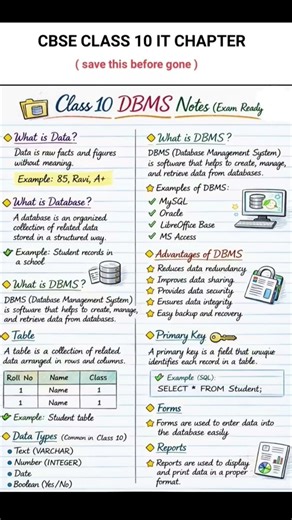 CBSE CLASS 10 IT CHAPTER
( save this before gone )
Class 10 DBMS Notes (Exam Ready
What is Data?
Data is raw facts and figures
without meaning.
Example: 85, Ravi, A+
What is Database?
A database is an organized
collection of related data
stored in a structured way.
Example: Student records in
a school
What is DBMS?
DBMS (Database Management System)
is software that helps to create, manage,
and retrieve data from databases.
Table
A table is a collection of related
data arranged in rows and columns.
Roll No Name Class
1 Name 1
1 Name 1
Example: Student table
Data Types (Common in Class 10)
Text (VARCHAR)
Number (INTEGER)
Date
Boolean (Yes/No)
What is DBMS?
DBMS (Database Management System)
is software that helps to create, manage,
and retrieve data from databases.
Examples of DBMS:
MySQL
Oracle
LibreOffice Base
MS Access
Advantages of DBMS
Reduces data redundancy
Improves data sharing
Provides data security
Ensures data integrity
Easy backup and recovery
Primary Key
A primary key is a field that unique
identifies each record in a table.
Example (SQL)
SELECT * FROM Student;
Forms
Forms are used to enter data into
the database easily.
Reports
Reports are used to display
and print data in a proper
format.